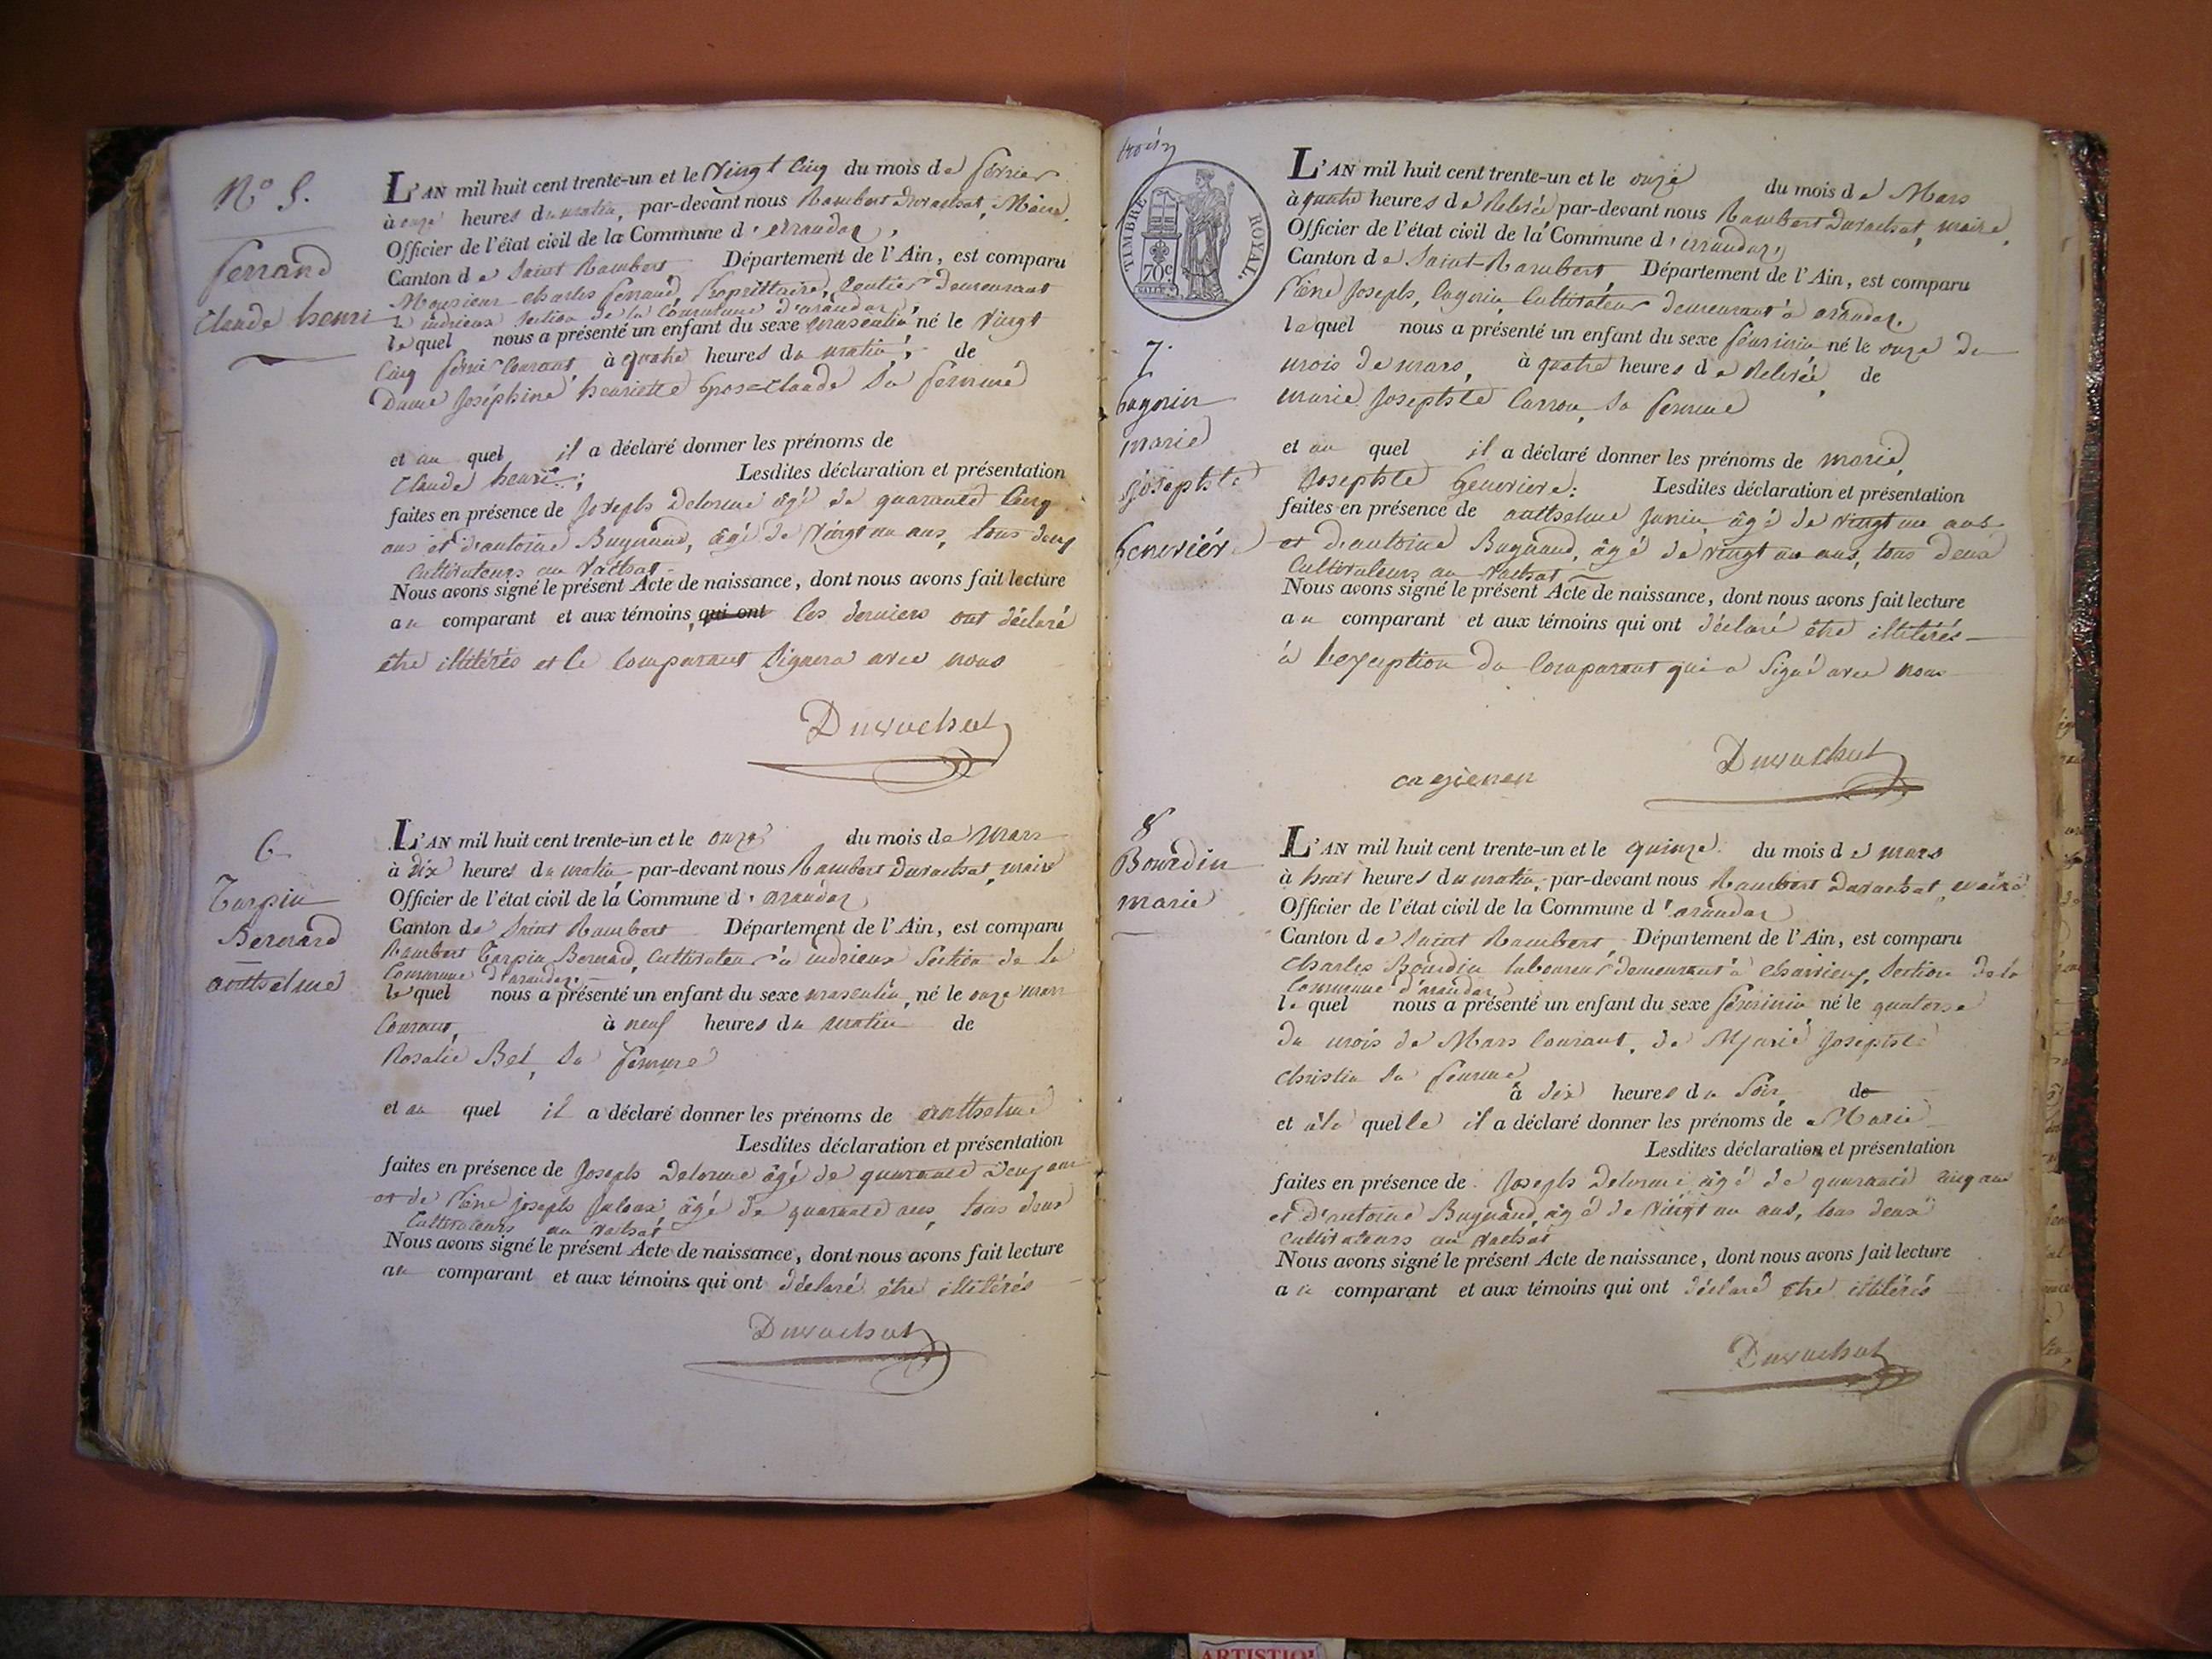 N° 5.
Ferrand
Claude henri
L'AN mil huit cent trente-un et le Vingt Cinq du mois de février
à onze heures du matin, par-devant nous Rambert Duvachat, Maire,
Officier de l'état civil de la Commune d'arandas,
Canton de Saint Rambert Département de l'Ain, est comparu
Monsieur charles ferrand, Propriétaire, Rentier demeurant
à indrieux section de la Commune d'arandas,
lequel nous a présenté un enfant du sexe masculin, né le Vingt
Cinq février Courant à quatre heures du matin, de
Dame Joséphine henriette Gros-Claude Sa femme
et au quel il a déclaré donner les prénoms de
Claude henri; Lesdites déclaration et présentation
faites en présence de Joseph Delorme âgé de quarante Cinq
ans et d'antoine Buynand, âgé de Vingt un ans, tous deux
Cultivateurs au Vachat
Nous avons signé le présent Acte de naissance, dont nous avons fait lecture
au comparant et aux témoins, qui ont les derniers ont déclaré
être illitérés et le Comparant Signera avec nous
Duvachat
6
Tarpin
Bernard
anthelme
L'AN mil huit cent trente-un et le onze du mois de Mars
à dix heures du matin par-devant nous Rambert Duvachat, maire
Officier de l'état civil de la Commune d'arandas
Canton de Saint Rambert Département de l'Ain, est comparu
Rambert Tarpin Bernard, Cultivateur à indrieux Section de la
Commune d'arandas
lequel nous a présenté un enfant du sexe masculin, né le onze mars
Courant, à neuf heures du matin de
Rosalie Bel, Sa femme
et au quel il a déclaré donner les prénoms de anthelme
Lesdites déclaration et présentation
faites en présence de Joseph Delorme âgé de quarante Deux ans
et de Pierre joseph âgé de quarante ans, tous deux
Cultivateurs au Vachat
Nous avons signé le présent Acte de naissance, dont nous avons fait lecture
au comparant et aux témoins qui ont déclaré être illitérés
Duvachat
trois
TIMBRE ROYAL
70c
7.
Cagnin
marie
josephte
Genevière
L'AN mil huit cent trente-un et le onze du mois de Mars
à quatre heures de Relevée par-devant nous Rambert Duvachat, maire,
Officier de l'état civil de la Commune d'arandas,
Canton de Saint-Rambert, Département de l'Ain, est comparu
Pierre Joseph, Cagnin, Cultivateur demeurant à arandas.
lequel nous a présenté un enfant du sexe féminin né le onze du
mois de mars, à quatre heures de Relevée, de
marie Josephte Carron, Sa femme
et au quel il a déclaré donner les prénoms de marie,
Josephte Genevière: Lesdites déclaration et présentation
faites en présence de anthelme Junin, âgé de vingt un ans
et d'antoine Buynand, âgé de vingt un ans, tous deux
Cultivateurs au Vachat
Nous avons signé le présent Acte de naissance, dont nous avons fait lecture
au comparant et aux témoins qui ont déclaré être illitérés
à l'exeption du Comparant qui a Signé avec nous
Duvachat
8
Bourdin
marie
L'AN mil huit cent trente-un et le quinze du mois de mars
à huit heures du matin, par-devant nous Rambert Duvachat, maire
Officier de l'état civil de la Commune d'arandas
Canton de Saint Rambert Département de l'Ain, est comparu
Charles Bourdin laboureur demeurant à Charvieux, Section de la
Commune d'arandas
lequel nous a présenté un enfant du sexe féminin né le quatorse
du mois de Mars Courant, de Marie Josephte
Christin Sa femme
à dix heures du Soir de
et à la quelle il a déclaré donner les prénoms de Marie
Lesdites déclaration et présentation
faites en présence de Joseph Delorme âgé de quarante cinq ans
et d'antoine Buynand, âgé de Vingt un ans, tous deux
Cultivateurs au Vachat
Nous avons signé le présent Acte de naissance, dont nous avons fait lecture
au comparant et aux témoins qui ont déclaré être illitérés
Duvachat